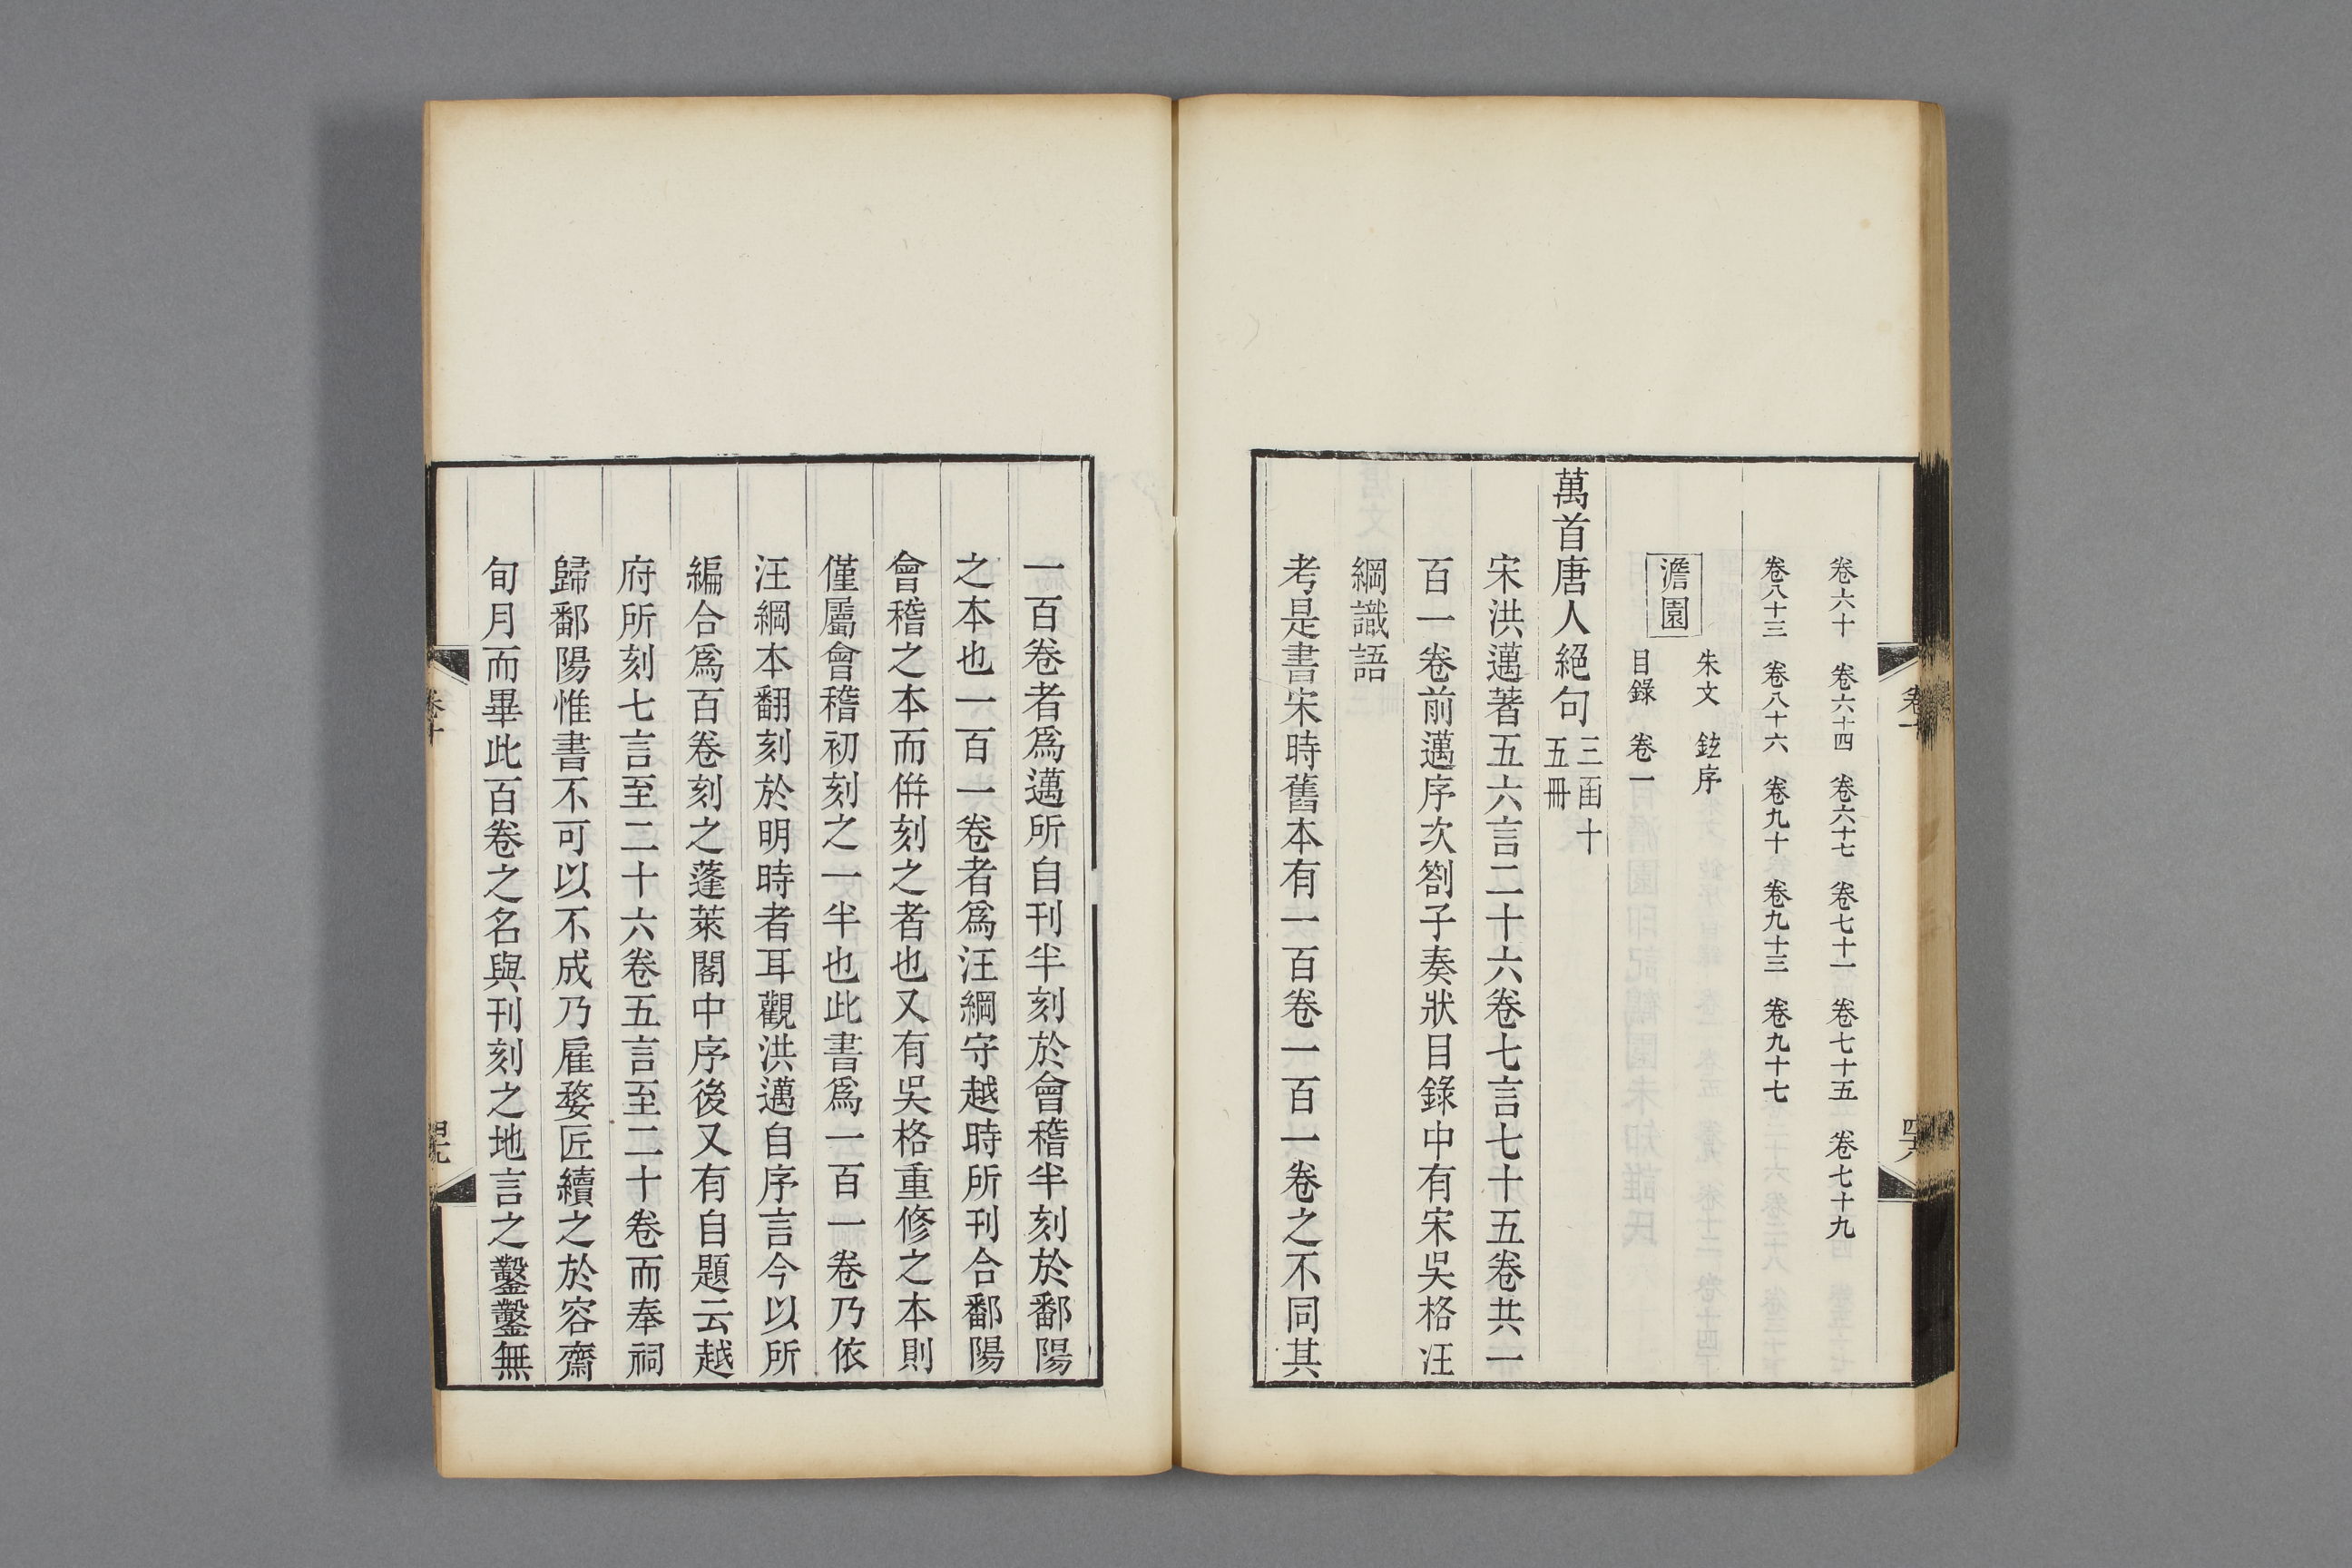 卷六十 卷六十四 卷六十七 卷七十一 卷七十五 卷七十九
卷八十三 卷八十六 卷九十 卷九十三 卷九十七
澹園
朱文 鉉序
目錄 卷一
萬首唐人絕句
三函十
五冊
宋洪邁著五六言二十六卷七言七十五卷共一
百一卷前邁序次劄子奏狀目錄中有宋吳格汪
綱識語
考是書宋時舊本有一百卷一百一卷之不同其
一百卷者爲邁所自刊半刻於會稽半刻於鄱陽
之本也一百一卷者爲汪綱守越時所刊合鄱陽
會稽之本而倂刻之者也又有吳格重修之本則
僅屬會稽初刻之一半也此書爲一百一卷乃依
汪綱本翻刻於明時者耳觀洪邁自序言今以所
編合爲百卷刻之蓬萊閣中序後又有自題云越
府所刻七言至二十六卷五言至二十卷而奉祠
歸鄱陽惟書不可以不成乃雇婺匠續之於容齋
旬月而畢此百卷之名與刊刻之地言之鑿鑿無